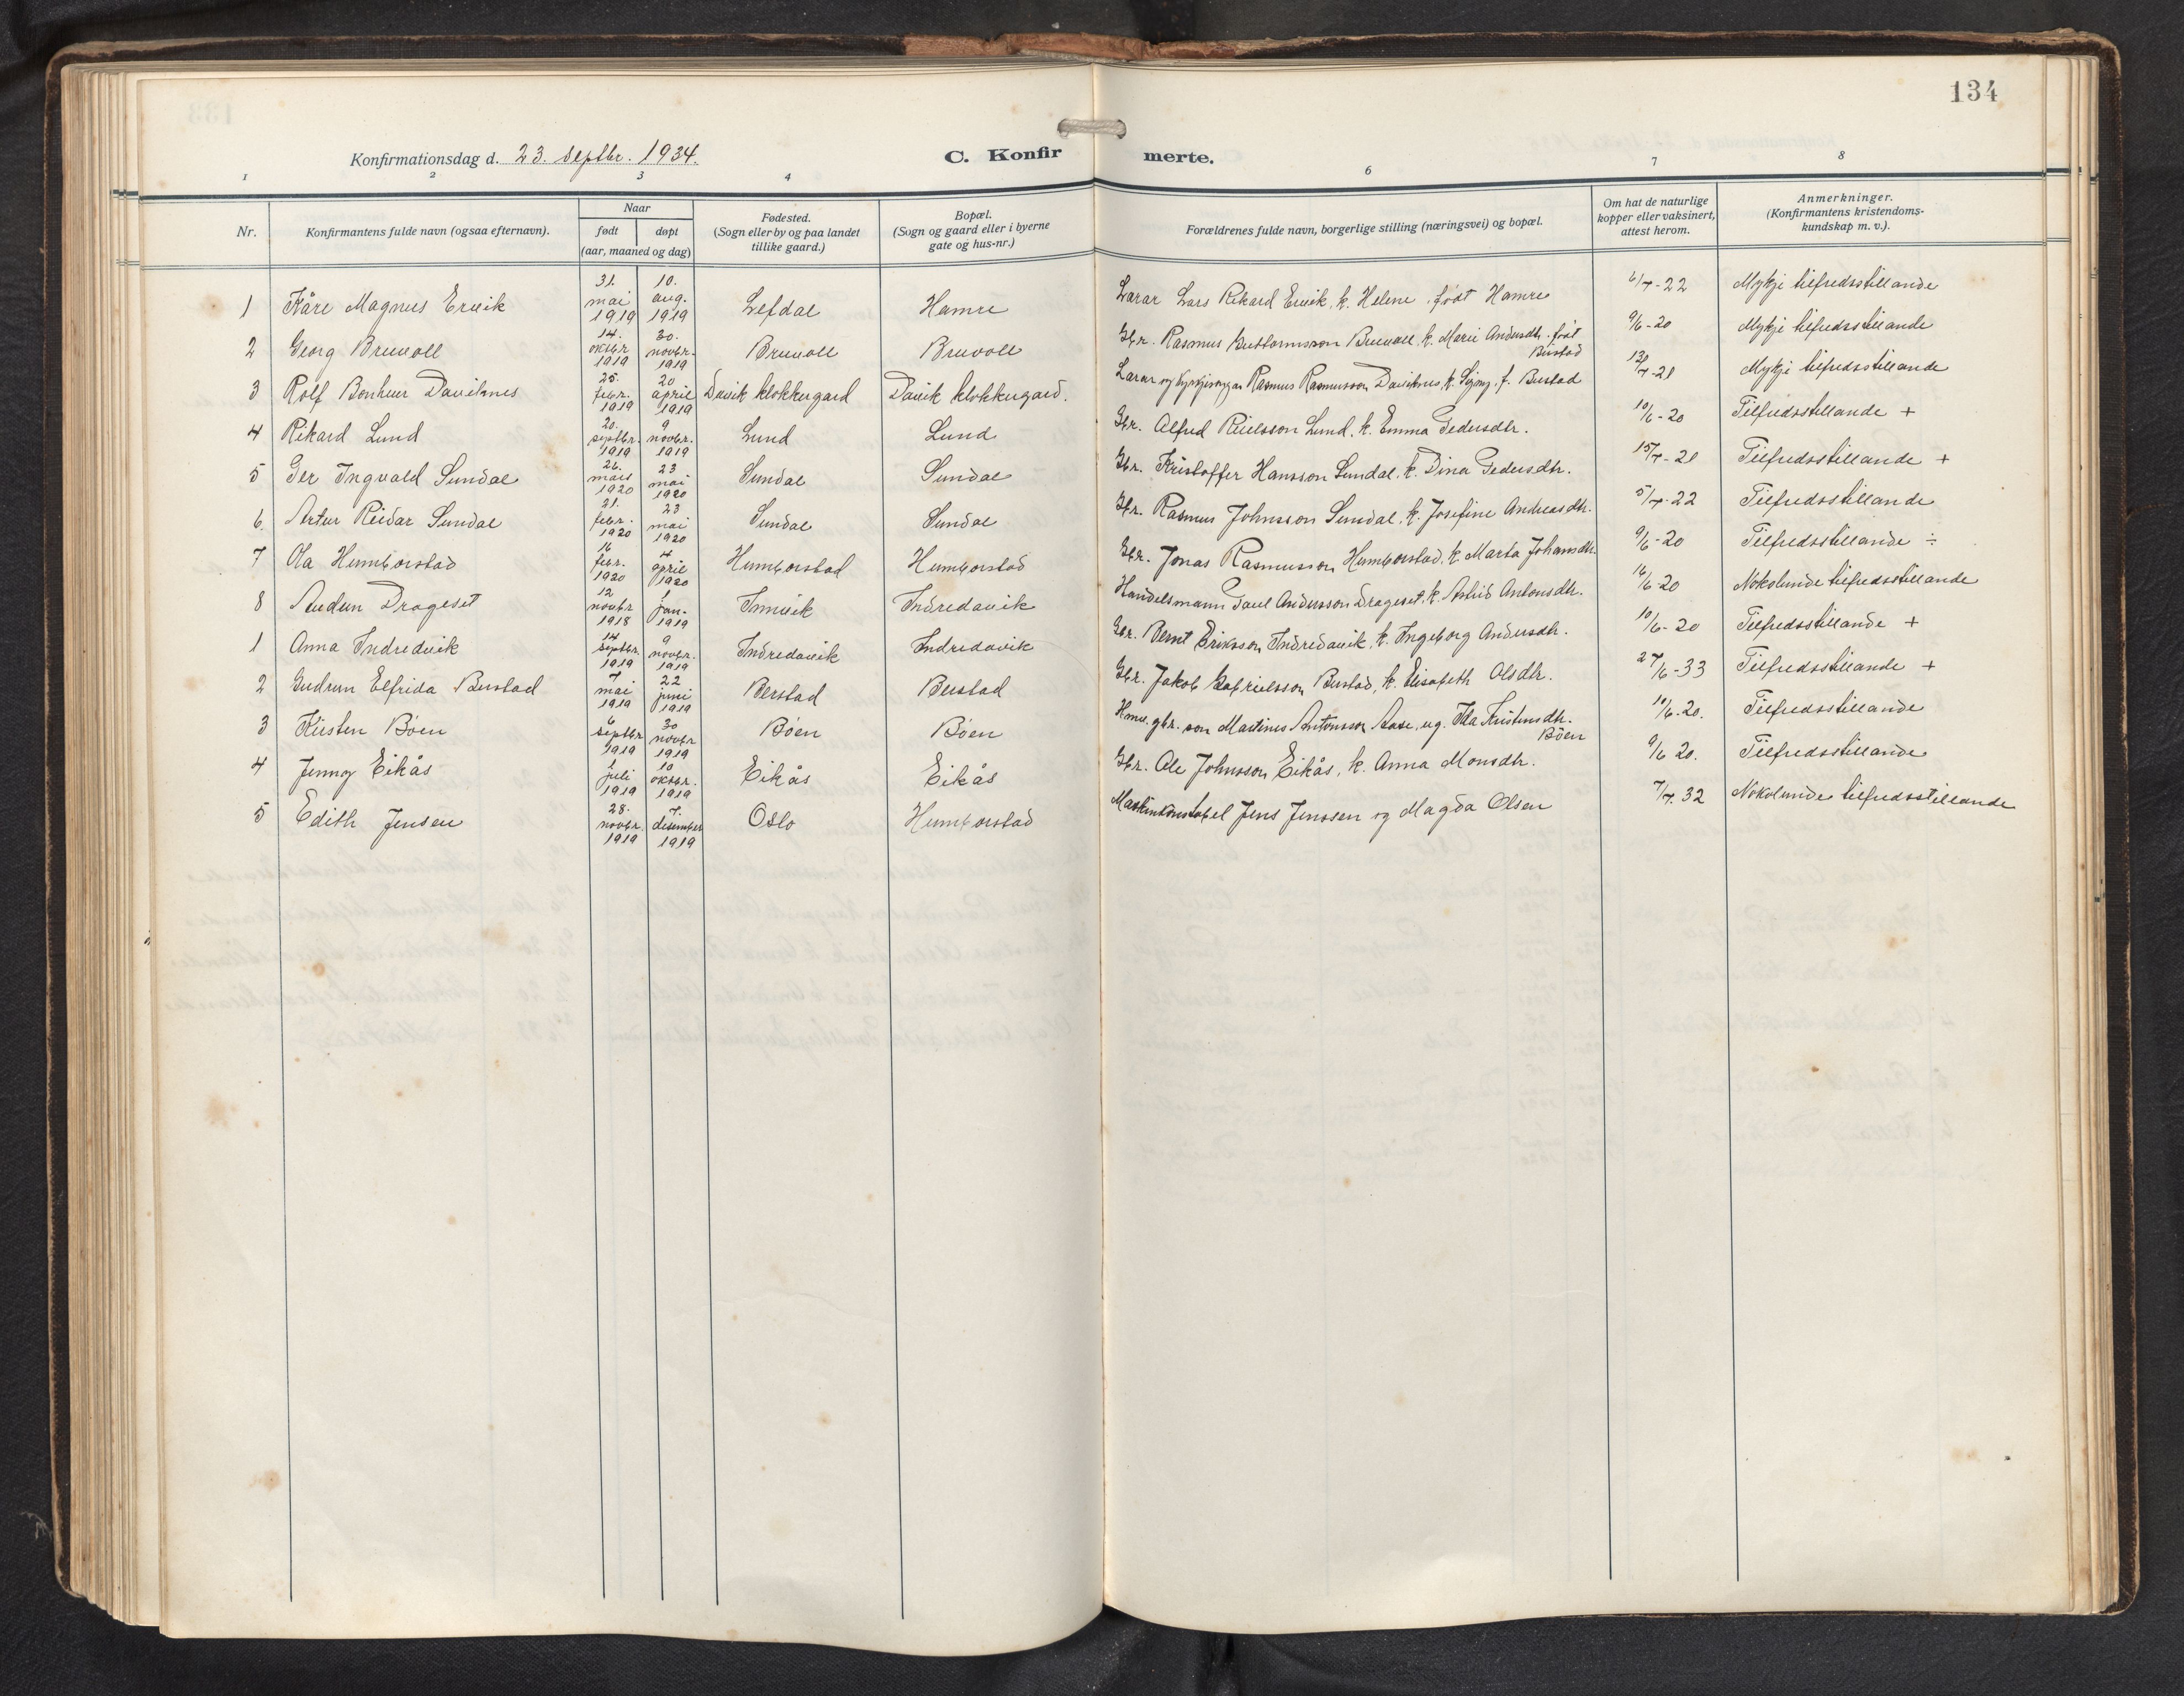 134
Konfirmationsdag d. 23. septbr. 1934.
C. Konfirmerte.
1 2 3 4 6 7 8
Nr.
Konfirmantens fulde navn (ogsaa efternavn).
Naar
født døpt
(aar, maaned og dag)
Fødested.
(Sogn eller by og paa landet
tillike gaard.)
Bopæl.
(Sogn og gaard eller i byerne
gate og hus-nr.)
Forældrenes fulde navn, borgerlige stilling (næringsvei) og bopæl.
Om hat de naturlige
kopper eller vaksinert,
attest herom.
Anmerkninger.
(Konfirmantens kristendoms-
kundskap m. v.).
1 Kåre Magnus Ervik 31. mai 1919 10. aug. 1919 Lefdal Hamre Lærar Lars Rikard Ervik, k. Helene, født Hamre 6/7-22 Mykje tilfredsstillande
2 Georg Bruvoll 14. oktbr 1919 30. novbr. 1919 Bruvoll Bruvoll Gbr. Rasmus Guttormsson Bruvoll, k. Marie Andersdtr. født Bustad 9/6-20 Mykje tilfredsstillande
3 Rolf Bonheur Daviknes 25. febr. 1919 20 april 1919 Davik klokkergard Davik klokkergard. Lærar og kyrkjesongar Rasmus Rasmusson Daviknes, k. Signy, f. Bustad 13/7-21 Mykje tilfredsstillande
4 Rikard Lund 20. septbr. 1919 9 novbr. 1919 Lund Lund Gbr. Alfred Nielsson Lund, k. Emma Pedersdtr. 10/6-20 Tilfredsstillande +
5 Per Ingvald Sundal 26. mars 1920 23 mai 1920 Sundal Sundal Gbr. Kristoffer Hansson Sundal, k. Dina Pedersdtr. 15/7-21 Tilfredsstillande +
6. Artur Reidar Sundal 21. febr. 1920 23 mai 1920 Sundal Sundal Gbr. Rasmus Johnsson Sundal, k. Josefine Andreasdtr. 5/7-22 Tilfredsstillande
7 Ola Humborstad 16 febr. 1920 4 april 1920 Humborstad Humborstad Gbr. Jonas Rasmusson Humborstad, k. Marta Johansdtr. 9/6-20 Tilfredsstillande ÷
8 Audun Drageset 12 novbr 1918 1 jan. 1919 Innvik Indredavik Handelsmann Paul Andersson Drageset, k. Astrid Antonsdtr. 16/6-20 Nokolunde tilfredsstillande
1 Anna Indredvik 14 septbr. 1919 9 novbr. 1919 Indredavik Indredavik Gbr. Bernt Eriksson Indredavik, k. Ingeborg Andersdtr. 10/6-20 Tilfredsstillande +
2 Gudrun Elfrida Bustad 7 mai 1919 22 juni 1919 Berstad Bustad Gbr. Jakob Gabrielsson Bustad, k. Elisabeth Olsdtr. 27/6-33 Tilfredsstillande +
3 Kirsten Böen 6 septbr 1919 30 novbr 1919 Böen Böen gbr. son Martinus Antonsson Aase, ug. Ida Kristensdtr. Böen 10/6-20. Tilfredsstillande
4 Jenny Eikås 1 juli 1919 10 oktbr. 1919 Eikås Eikås Gbr. Ole Johnsson Eikås, k. Anna Monsdtr. 9/6 20. Tilfredsstillande
5 Edith Jensen 28. novbr. 1919 7. desember 1919 Oslo Humborstad Maskinkonstabel Jens Jenssen og Magda Olsen 7/7. 32 Nokolunde tilfredsstillande